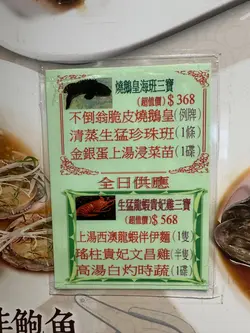 燒鵝皇海班三寶
(超值價)$368
不倒翁脆皮燒鵝皇(例牌)
清蒸生猛珍珠班(1條)
金銀蛋上湯浸菜苗(1碟)
全日供應
生猛龍蝦貴妃雞三寶
(超值價)$568
上湯西澳龍蝦伴伊麵(1隻)
瑤柱貴妃文昌雞(半隻)
高湯白灼時蔬(1碟)
鮑魚